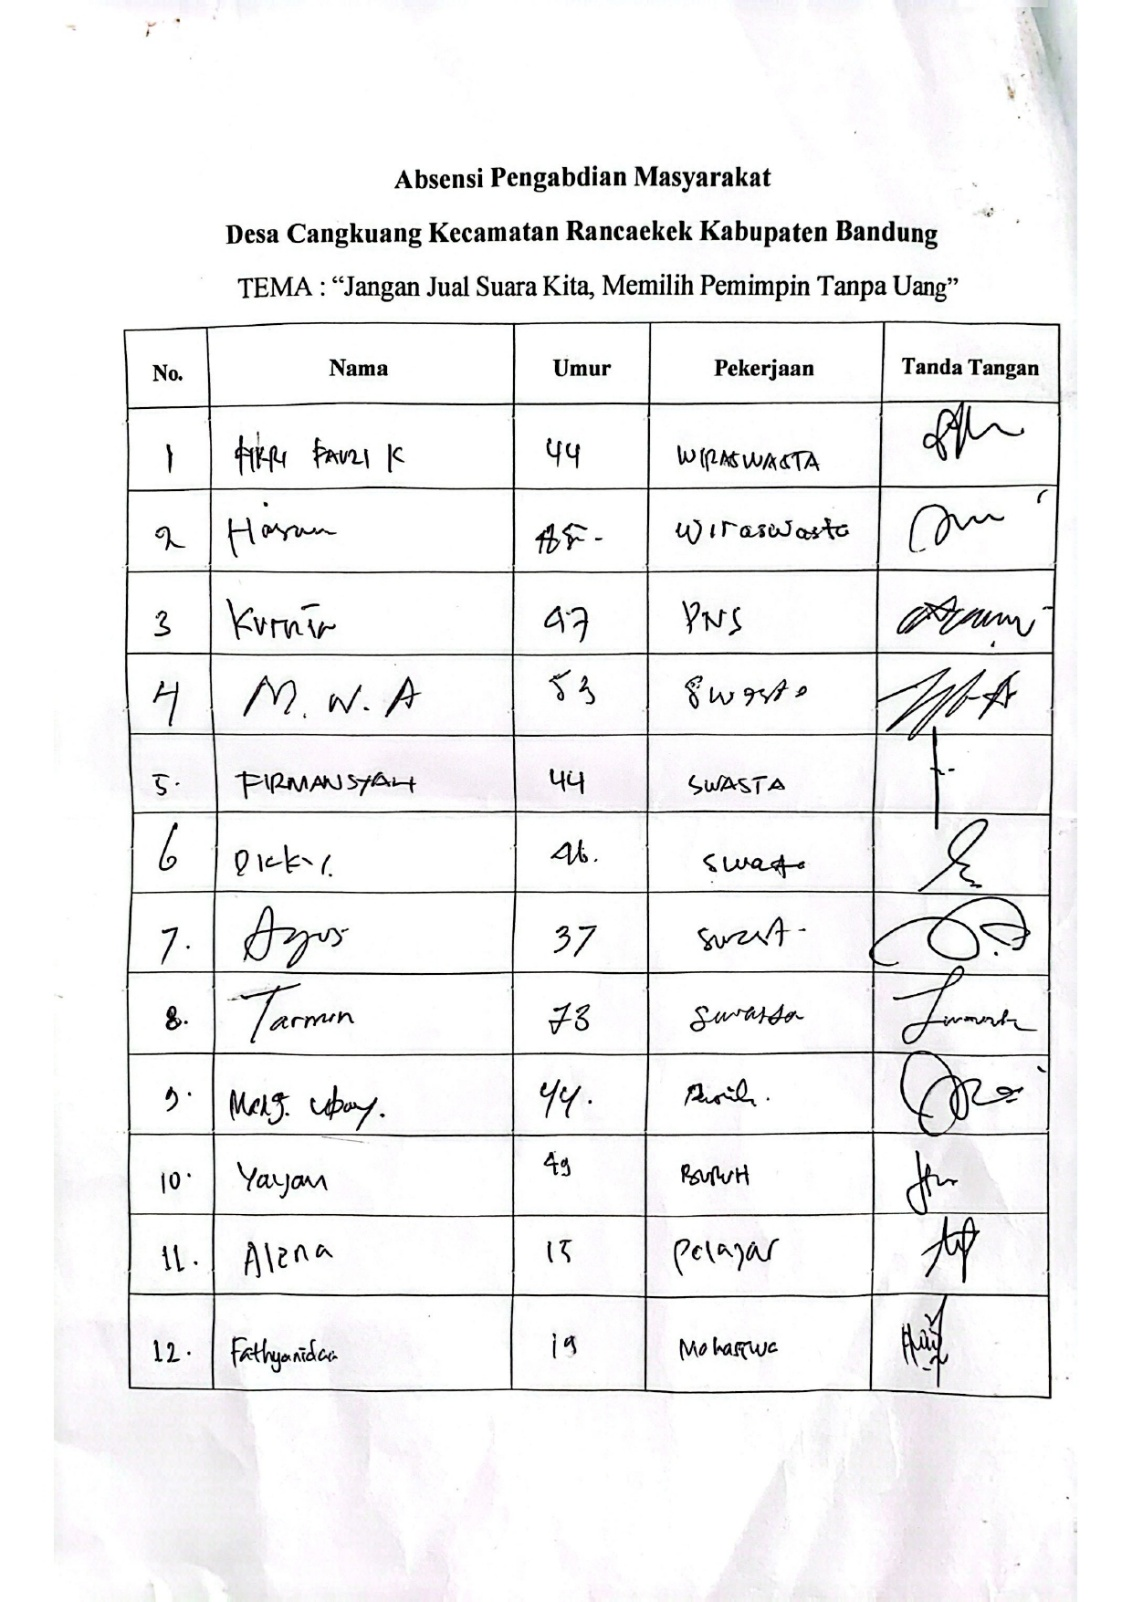 Absensi Pengabdian Masyarakat
Desa Cangkuang Kecamatan Rancaekek Kabupaten Bandung
TEMA : “Jangan Jual Suara Kita, Memilih Pemimpin Tanpa Uang”
No. Nama Umur Pekerjaan Tanda Tangan
1 FIKRI FAUZI K 44 WIRASWASTA
2 Hasan wiraswasta
3 Kurnia 47 PNS
4 M. W. A 53 Swasta
5. FIRMANSYAH 44 SWASTA
6 Dicky. 46. Swasta
7. Agus 37 Swast-
8. Tarmin 73 Swasta
9. 44.
10. Yayan 49 BURUH
11. Alena 15 Pelajar
12. Fathyanidaa 19 Mahasiswa